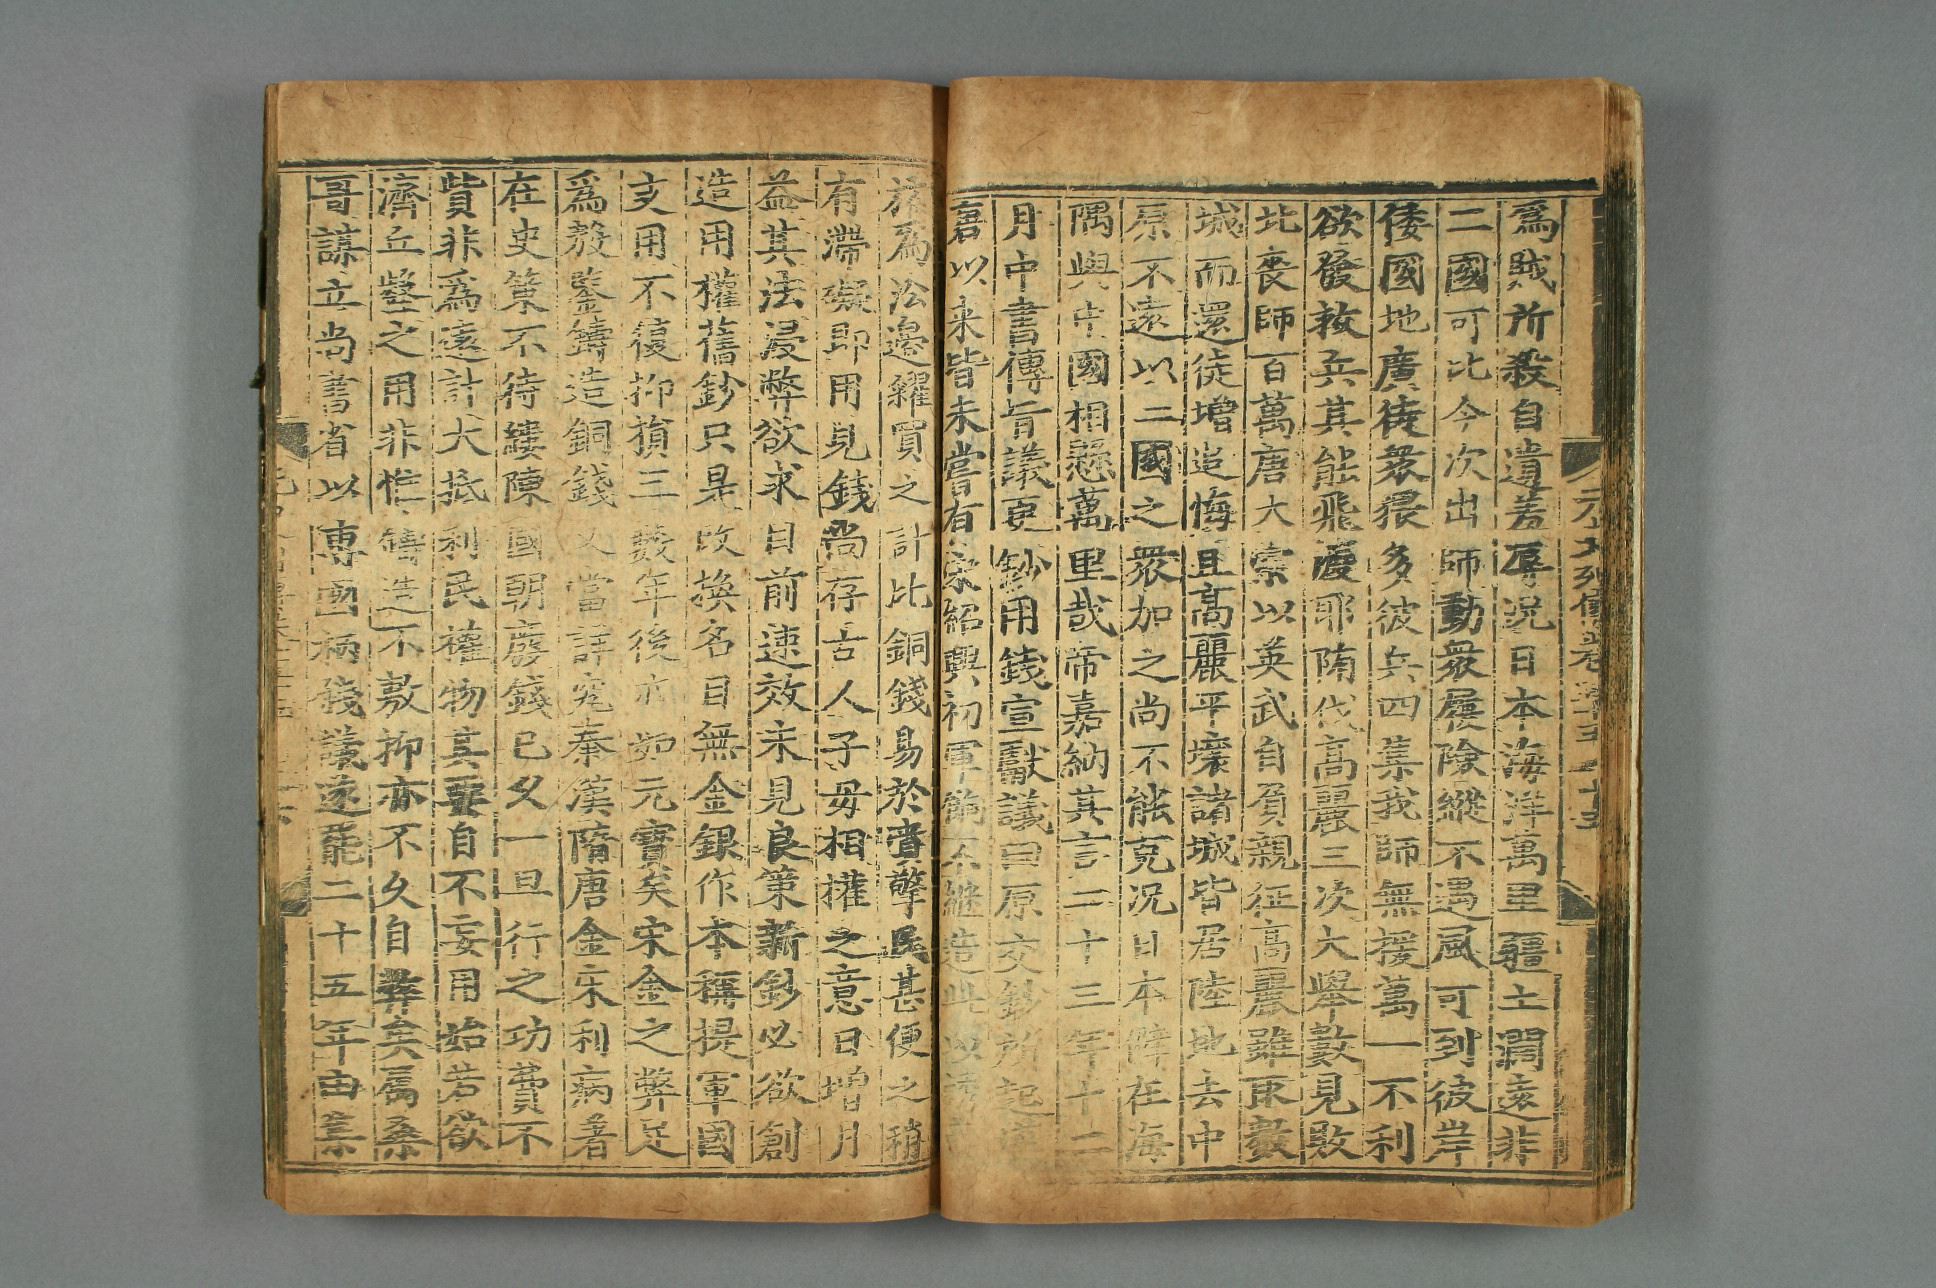 爲賊所殺自遺羞辱况日本海洋萬里疆土濶逺非
二國可比今次出師動衆履險縱不遇風可到彼岸
倭國地廣徒衆猥多彼兵四集我師無援萬一不利
欲發救兵其能飛渡耶隋伐髙麗三次大舉數見敗
北喪師百萬唐太宗以英武自負親征髙麗雖取數
城而還徒增追悔且髙麗平壤諸城皆居陸地去中
原不逺以二國之衆加之尚不能克况日本僻在海
隅與中國相懸萬里哉帝嘉納其言二十三年十二
月中書傳旨議更鈔用錢宣獻議曰原交鈔所起
唐以來皆未嘗有宋紹興初軍餉不繼造此以
為沿邊糴買之計比銅錢易於賫擎民甚便之稍
有滯礙即用見錢尚存古人子母相權之意日增月
益其法浸弊欲求目前速效未見良策新鈔必欲創
造用權舊鈔只是改換名目無金銀作本稱提軍國
支用不復抑損三數年後亦如元寶矣宋金之弊足
爲殷鑒鑄造銅錢又當詳究秦漢隋唐金宋利病著
在史策不待縷陳國朝廢錢已久一旦行之功費不
貲非爲逺計大抵利民權物其要自不妄用始若欲
濟丘壑之用非惟鑄造不敷抑亦不久自弊矣屬桑
哥謀立尚書省以專國柄錢議遂罷二十五年由集